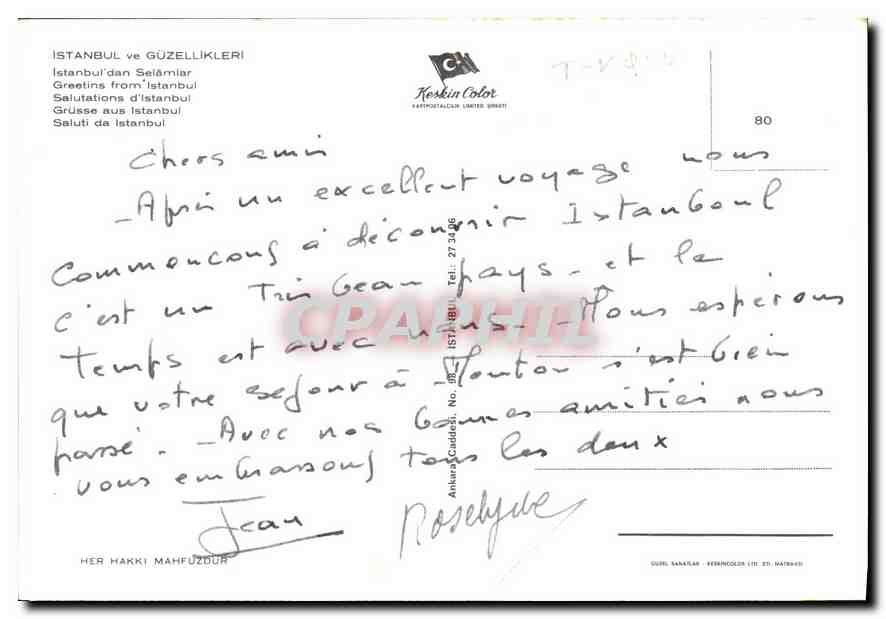 İSTANBUL ve GÜZELLİKLERİ
İstanbul'dan Selâmlar
Greetins from İstanbul
Salutations d'İstanbul
Grüsse aus Istanbul
Saluti da Istanbul
Keskin Color
KARTPOSTALCILIK LIMITED ŞİRKETİ
80
Chers amis
- Après un excellent voyage nous
commençons à découvrir Istanboul
c'est un Très beau pays - et le
Temps est avec nous - - Nous espérons
que votre séjour à Menton s'est bien
passé. - Avec nos bonnes amitiés nous
vous embrassons tous les deux
Jean
Roselyne
CPAPHIL
Ankara Caddesi, No. 98 - İSTANBUL Tel.: 27 34 06
HER HAKKI MAHFUZDUR
GÜZEL SANATLAR - KESKİNCOLOR LTD. ŞTİ. MATBAASI